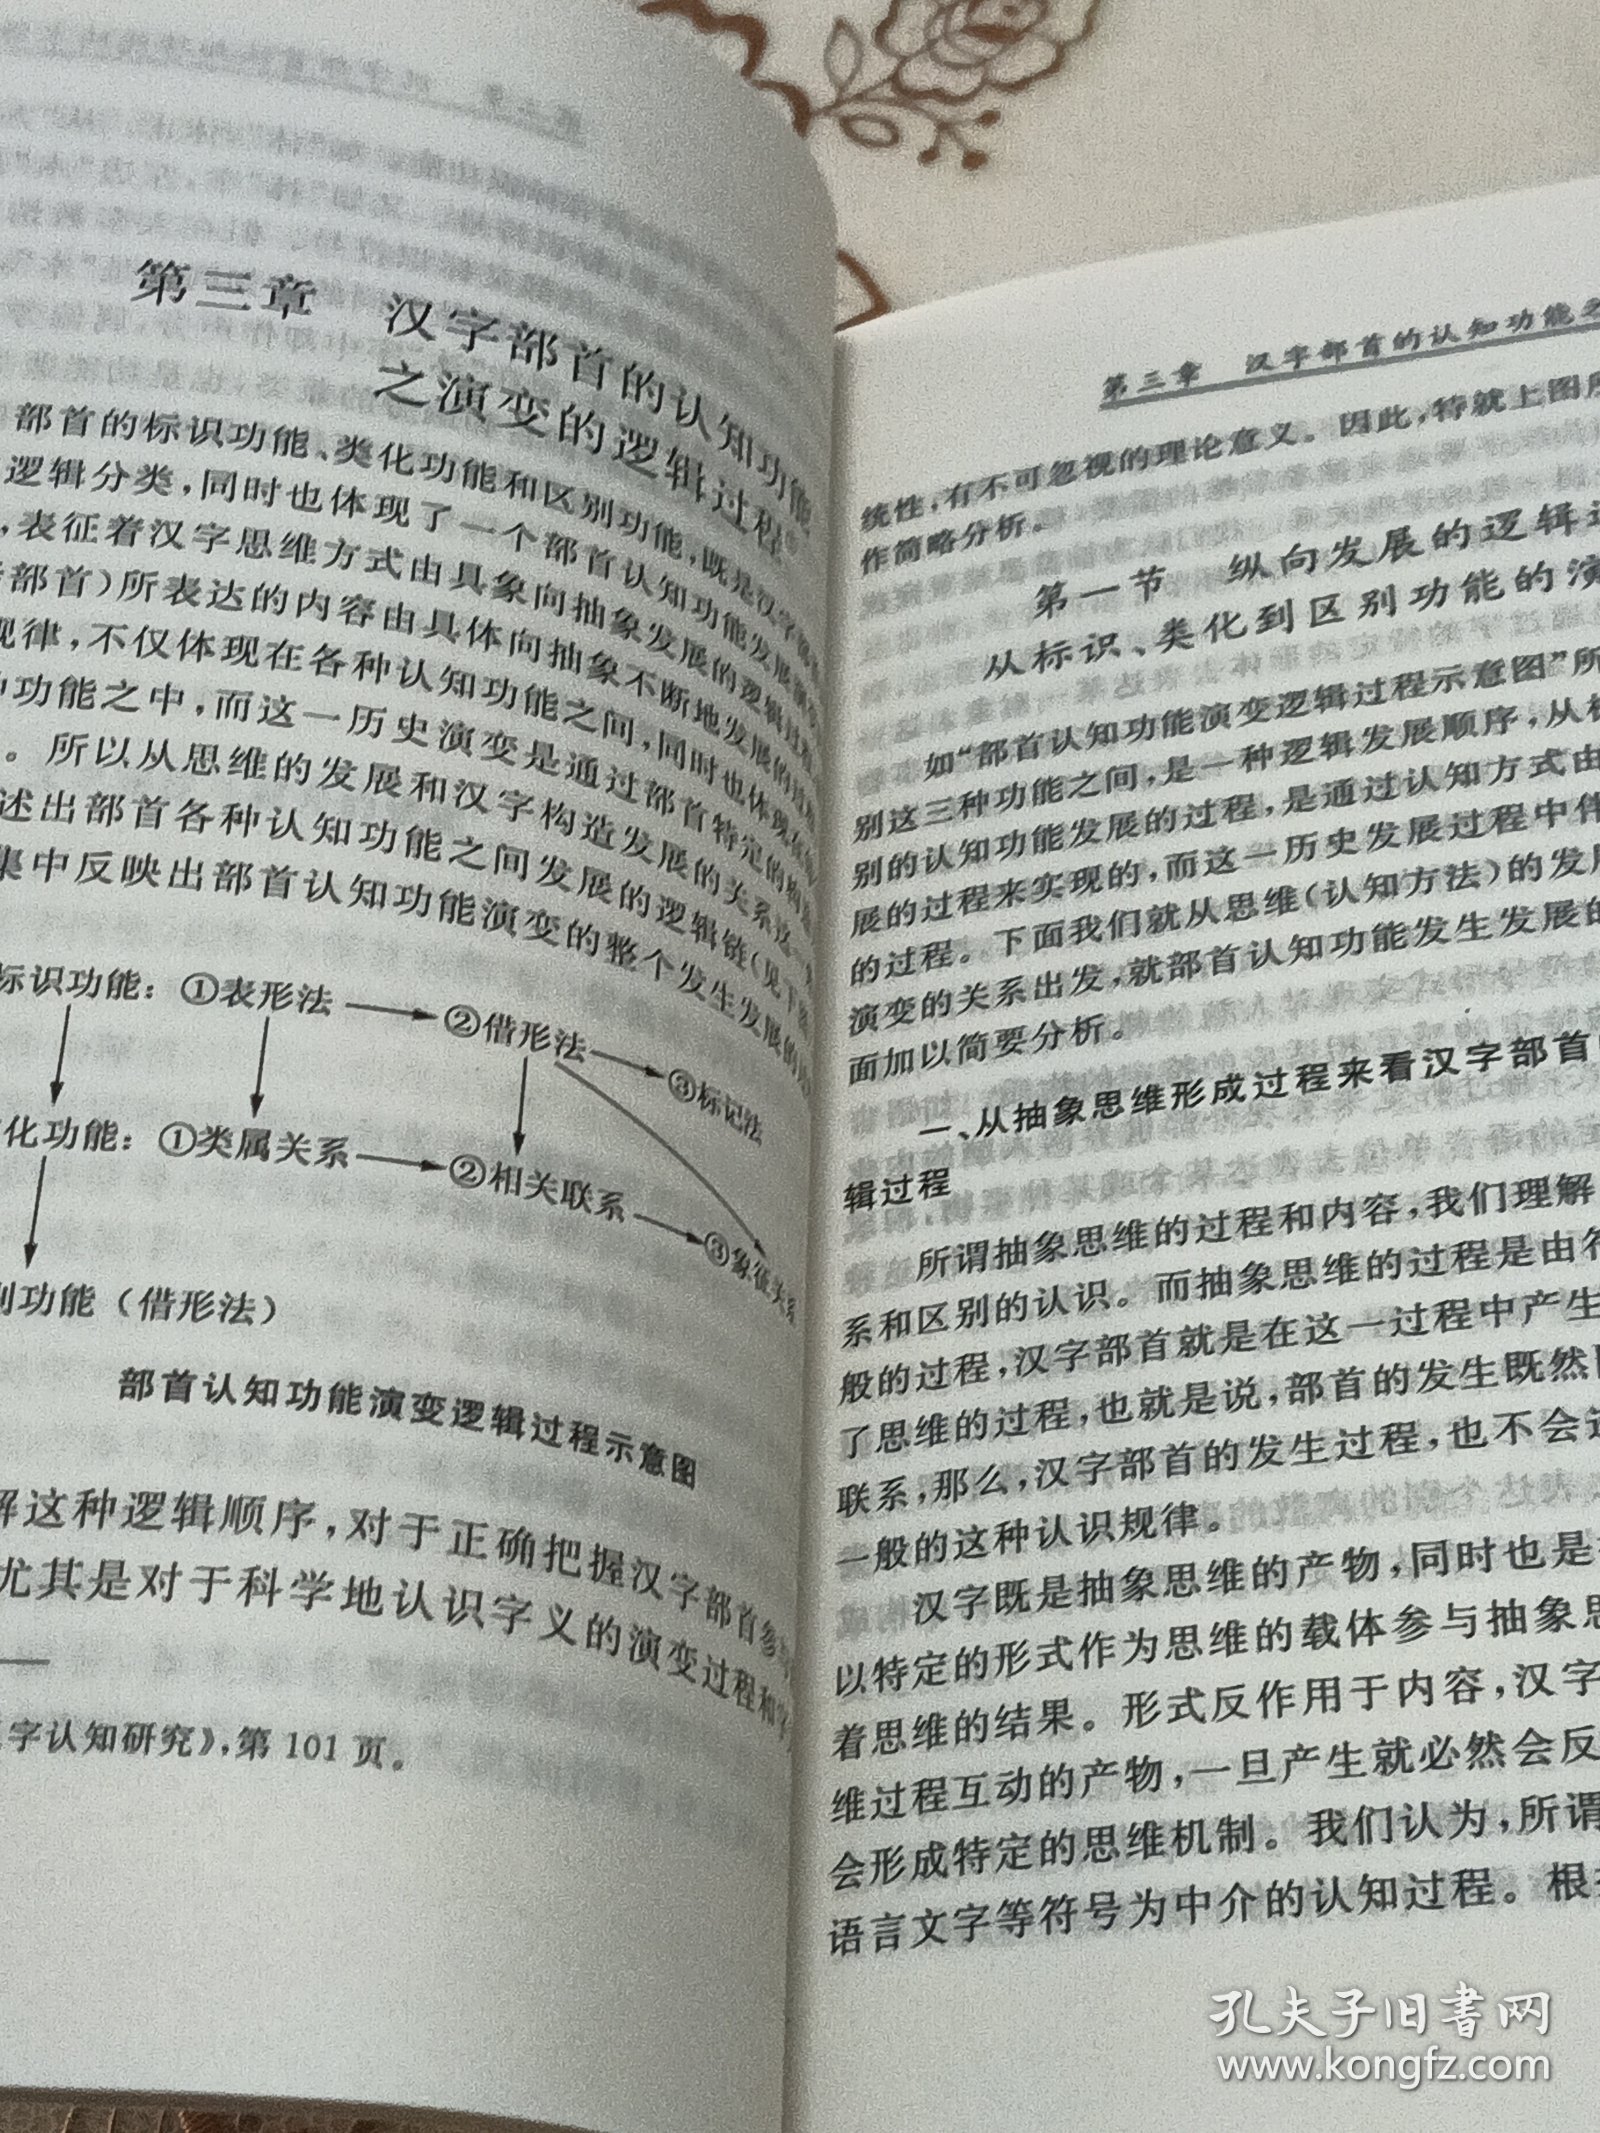 第三章 汉字部首的认知功能
之演变的逻辑过程
部首的标识功能、类化功能和区别功能,既是汉字
逻辑分类,同时也体现了一个部首认知功能发展
,表征着汉字思维方式由具象向抽象发展的逻辑过程
部首)所表达的内容由具体向抽象不断地发展的
规律,不仅体现在各种认知功能之间,同时也体现
功能之中,而这一历史演变是通过部首特定的构
。所以从思维的发展和汉字构造发展的关系
述出部首各种认知功能之间发展的逻辑链(见下
集中反映出部首认知功能演变的整个发生发展的
标识功能:①表形法 ②借形法 ③标记法
化功能:①类属关系 ②相关联系 ③象征关系
别功能(借形法)
部首认知功能演变逻辑过程示意图
解这种逻辑顺序,对于正确把握汉字部首参
尤其是对于科学地认识字义的演变过程和字
字认知研究》,第101页。
第三章 汉字部首的认知功能之
统性,有不可忽视的理论意义。因此,特就上图所
作简略分析。
第一节 纵向发展的逻辑过
从标识、类化到区别功能的演
如“部首认知功能演变逻辑过程示意图”所
别这三种功能之间,是一种逻辑发展顺序,从标
别的认知功能发展的过程,是通过认知方式由
展的过程来实现的,而这一历史发展过程中伴
的过程。下面我们就从思维(认知方法)的发展
演变的关系出发,就部首认知功能发生发展的
面加以简要分析。
一、从抽象思维形成过程来看汉字部首
辑过程
所谓抽象思维的过程和内容,我们理解
系和区别的认识。而抽象思维的过程是由符
般的过程,汉字部首就是在这一过程中产生
了思维的过程,也就是说,部首的发生既然
联系,那么,汉字部首的发生过程,也不会
一般的这种认识规律。
汉字既是抽象思维的产物,同时也是
以特定的形式作为思维的载体参与抽象思
着思维的结果。形式反作用于内容,汉字
维过程互动的产物,一旦产生就必然会反
会形成特定的思维机制。我们认为,所谓
语言文字等符号为中介的认知过程。根
孔夫子旧书网
www.kongfz.com